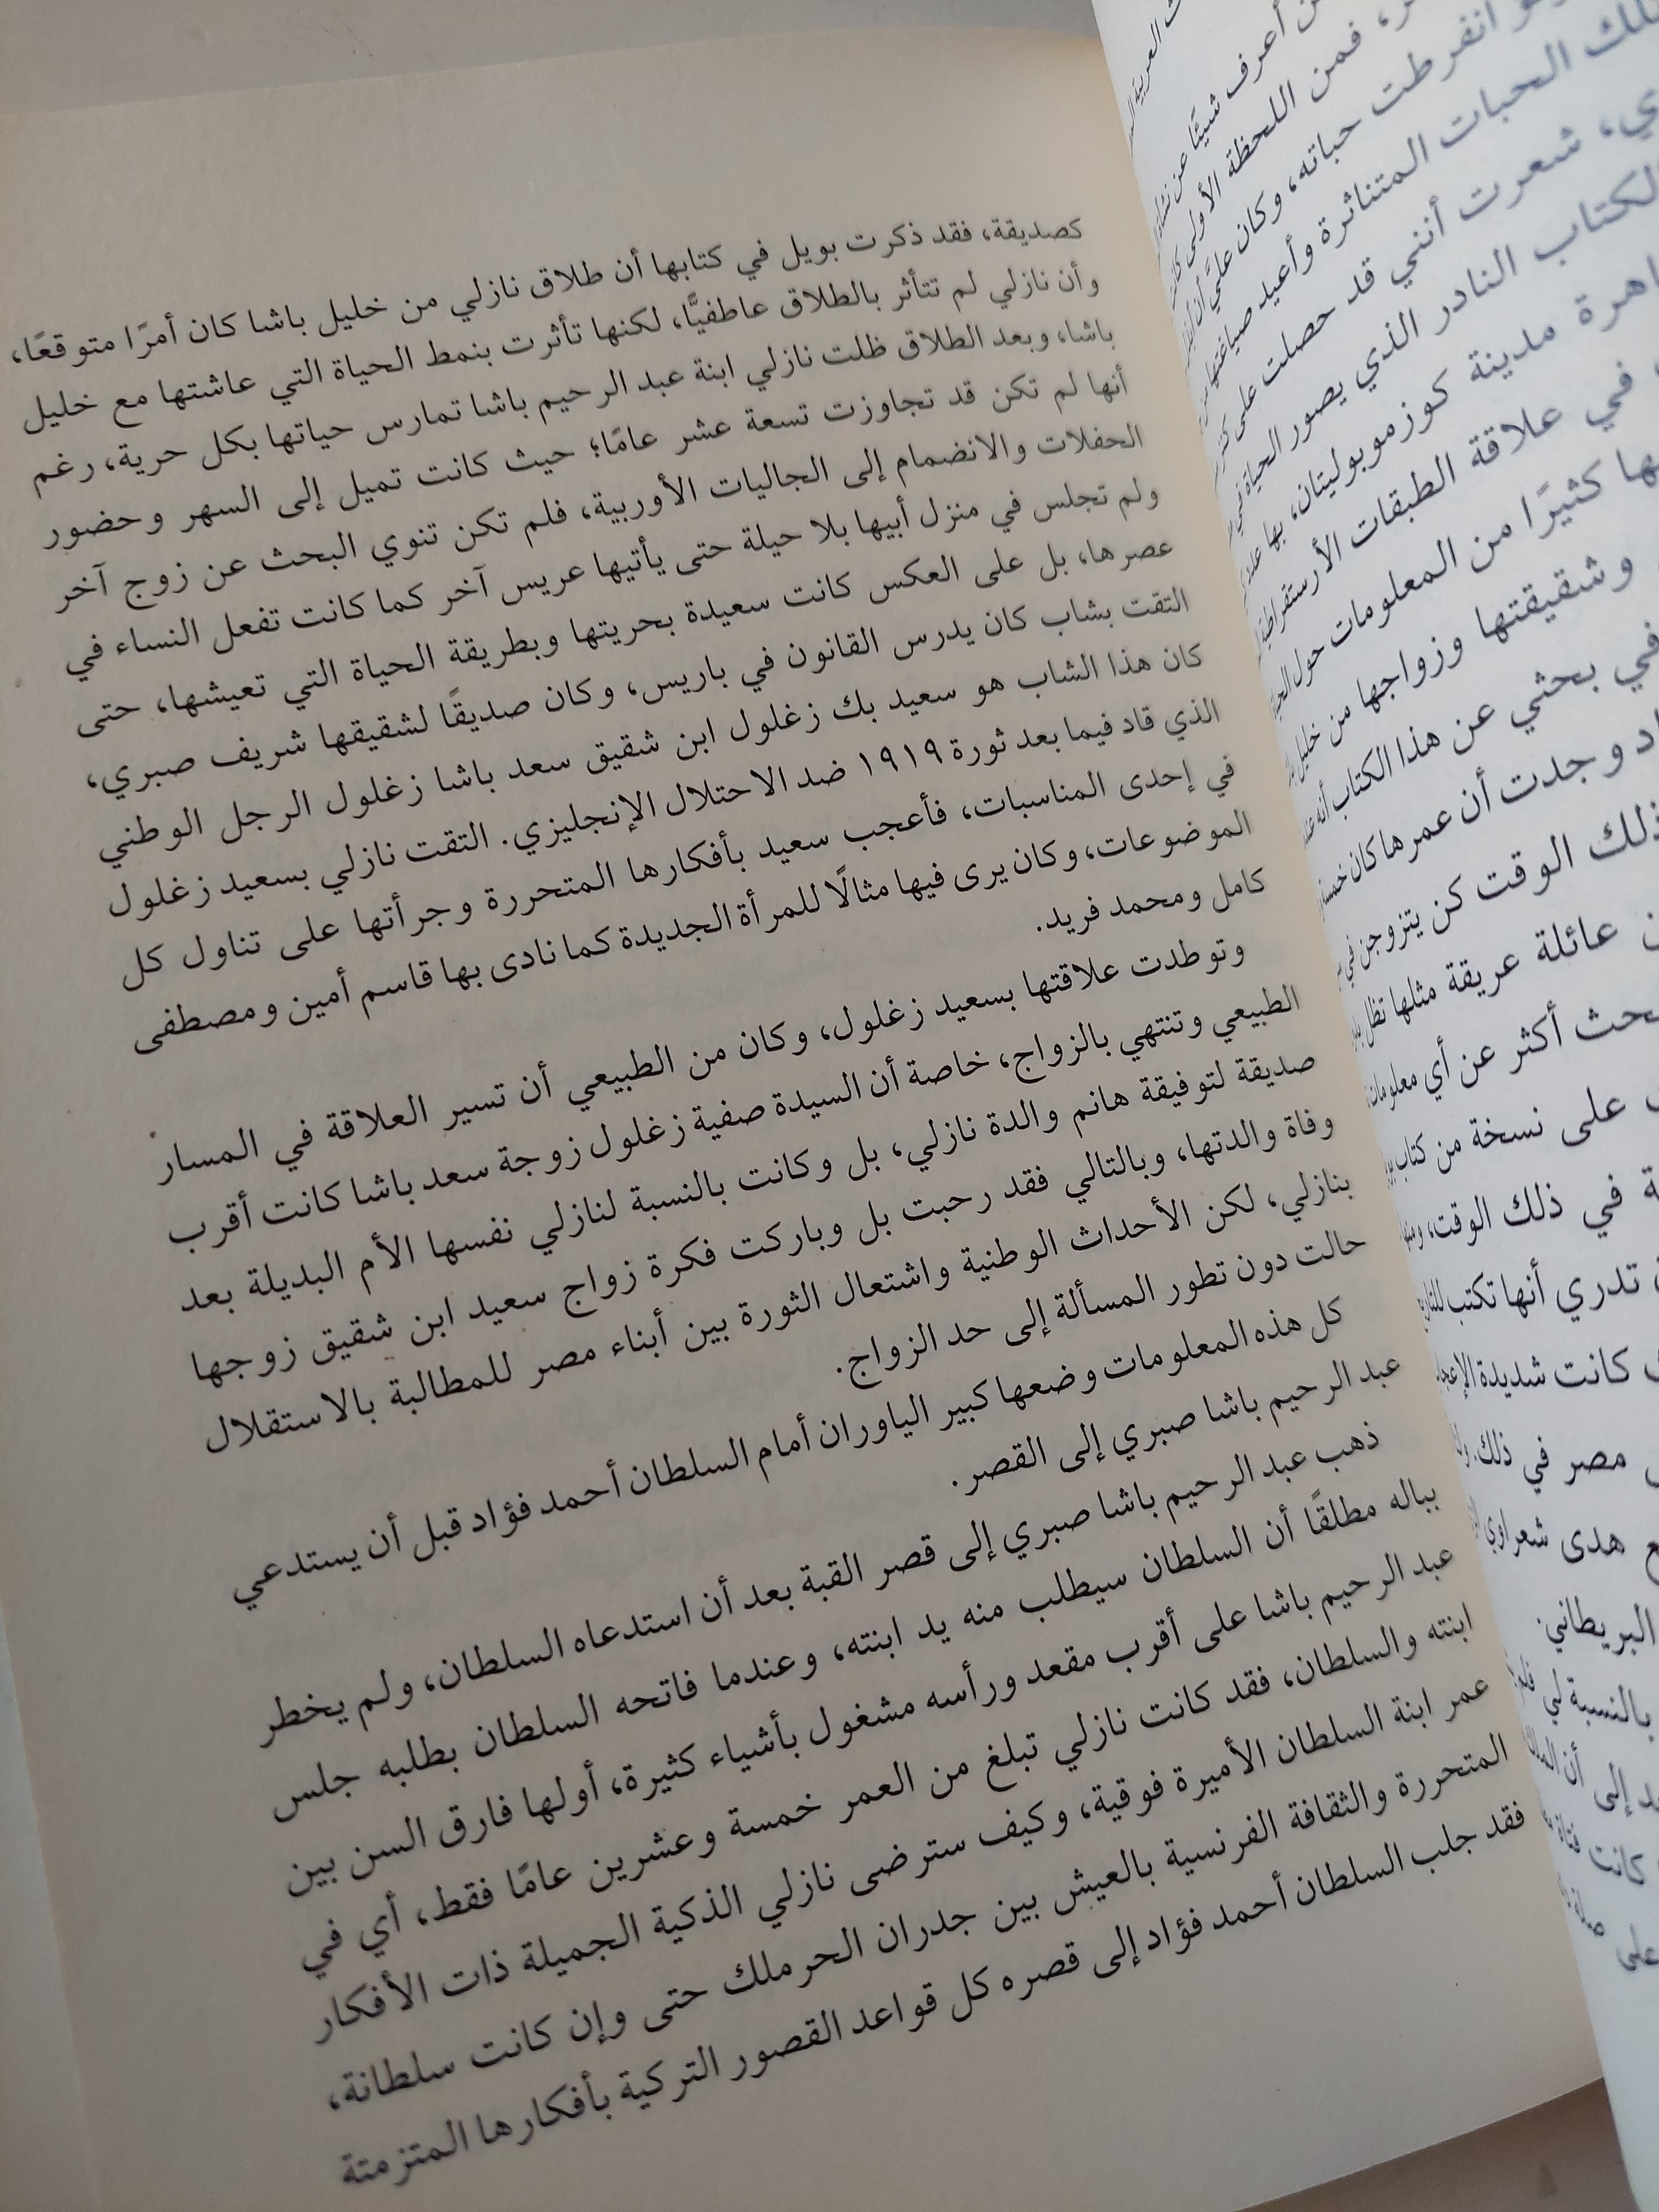 كصديقة، فقد ذكرت بويل في كتابها أن طلاق نازلي من خليل باشا كان أمرًا متوقعًا،
وأن نازلي لم تتأثر بالطلاق عاطفيًّا، لكنها تأثرت بنمط الحياة التي عاشتها مع خليل
باشا، وبعد الطلاق ظلت نازلي ابنة عبد الرحيم باشا تمارس حياتها بكل حرية، رغم
أنها لم تكن قد تجاوزت تسعة عشر عامًا؛ حيث كانت تميل إلى السهر وحضور
الحفلات والانضمام إلى الجاليات الأوربية، فلم تكن تنوي البحث عن زوج آخر
ولم تجلس في منزل أبيها بلا حيلة حتى يأتيها عريس آخر كما كانت تفعل النساء في
عصرها، بل على العكس كانت سعيدة بحريتها وبطريقة الحياة التي تعيشها، حتى
التقت بشاب كان يدرس القانون في باريس، وكان صديقًا لشقيقها شريف صبري،
كان هذا الشاب هو سعيد بك زغلول ابن شقيق سعد باشا زغلول الرجل الوطني
الذي قاد فيما بعد ثورة ١٩١٩ ضد الاحتلال الإنجليزي. التقت نازلي بسعيد زغلول
في إحدى المناسبات، فأعجب سعيد بأفكارها المتحررة وجرأتها على تناول كل
الموضوعات، وكان يرى فيها مثالًا للمرأة الجديدة كما نادى بها قاسم أمين ومصطفى
كامل ومحمد فريد.
وتوطدت علاقتها بسعيد زغلول، وكان من الطبيعي أن تسير العلاقة في المسار
الطبيعي وتنتهي بالزواج، خاصة أن السيدة صفية زغلول زوجة سعد باشا كانت أقرب
صديقة لتوفيقة هانم والدة نازلي، بل وكانت بالنسبة لنازلي نفسها الأم البديلة بعد
وفاة والدتها، وبالتالي فقد رحبت بل وباركت فكرة زواج سعيد ابن شقيق زوجها
بنازلي، لكن الأحداث الوطنية واشتعال الثورة بين أبناء مصر للمطالبة بالاستقلال
حالت دون تطور المسألة إلى حد الزواج.
كل هذه المعلومات وضعها كبير الياوران أمام السلطان أحمد فؤاد قبل أن يستدعي
عبد الرحيم باشا صبري إلى القصر.
ذهب عبد الرحيم باشا صبري إلى قصر القبة بعد أن استدعاه السلطان، ولم يخطر
بباله مطلقًا أن السلطان سيطلب منه يد ابنته، وعندما فاتحه السلطان بطلبه جلس
عبد الرحيم باشا على أقرب مقعد ورأسه مشغول بأشياء كثيرة، أولها فارق السن بين
ابنته والسلطان، فقد كانت نازلي تبلغ من العمر خمسة وعشرين عامًا فقط، أي في
عمر ابنة السلطان الأميرة فوقية، وكيف سترضى نازلي الذكية الجميلة ذات الأفكار
المتحررة والثقافة الفرنسية بالعيش بين جدران الحرملك حتى وإن كانت سلطانة،
فقد جلب السلطان أحمد فؤاد إلى قصره كل قواعد القصور التركية بأفكارها المتزمتة
أعرف شيئًا عن
فمن اللحظة الأولى
انفرطت حباته، وكان عليّ أن
الحبات المتناثرة وأعيد صياغتها
شعرت أنني قد حصلت على
الكتاب النادر الذي يصور الحياة في
مدينة كوزموبوليتان، بها
في علاقة الطبقات الأرستقراطية
كثيرًا من المعلومات حول
وشقيقتها وزواجها من خليل
في بحثي عن هذا الكتاب أنه
وجدت أن عمرها كان
ذلك الوقت كن يتزوجن في
عائلة عريقة مثلها تظل
أكثر عن أي معلومات
على نسخة من كتاب
في ذلك الوقت،
تدري أنها تكتب
كانت شديدة
مصر في ذلك
هدى شعراوي
البريطاني
بالنسبة لي
إلى أن
كانت فتاة
على